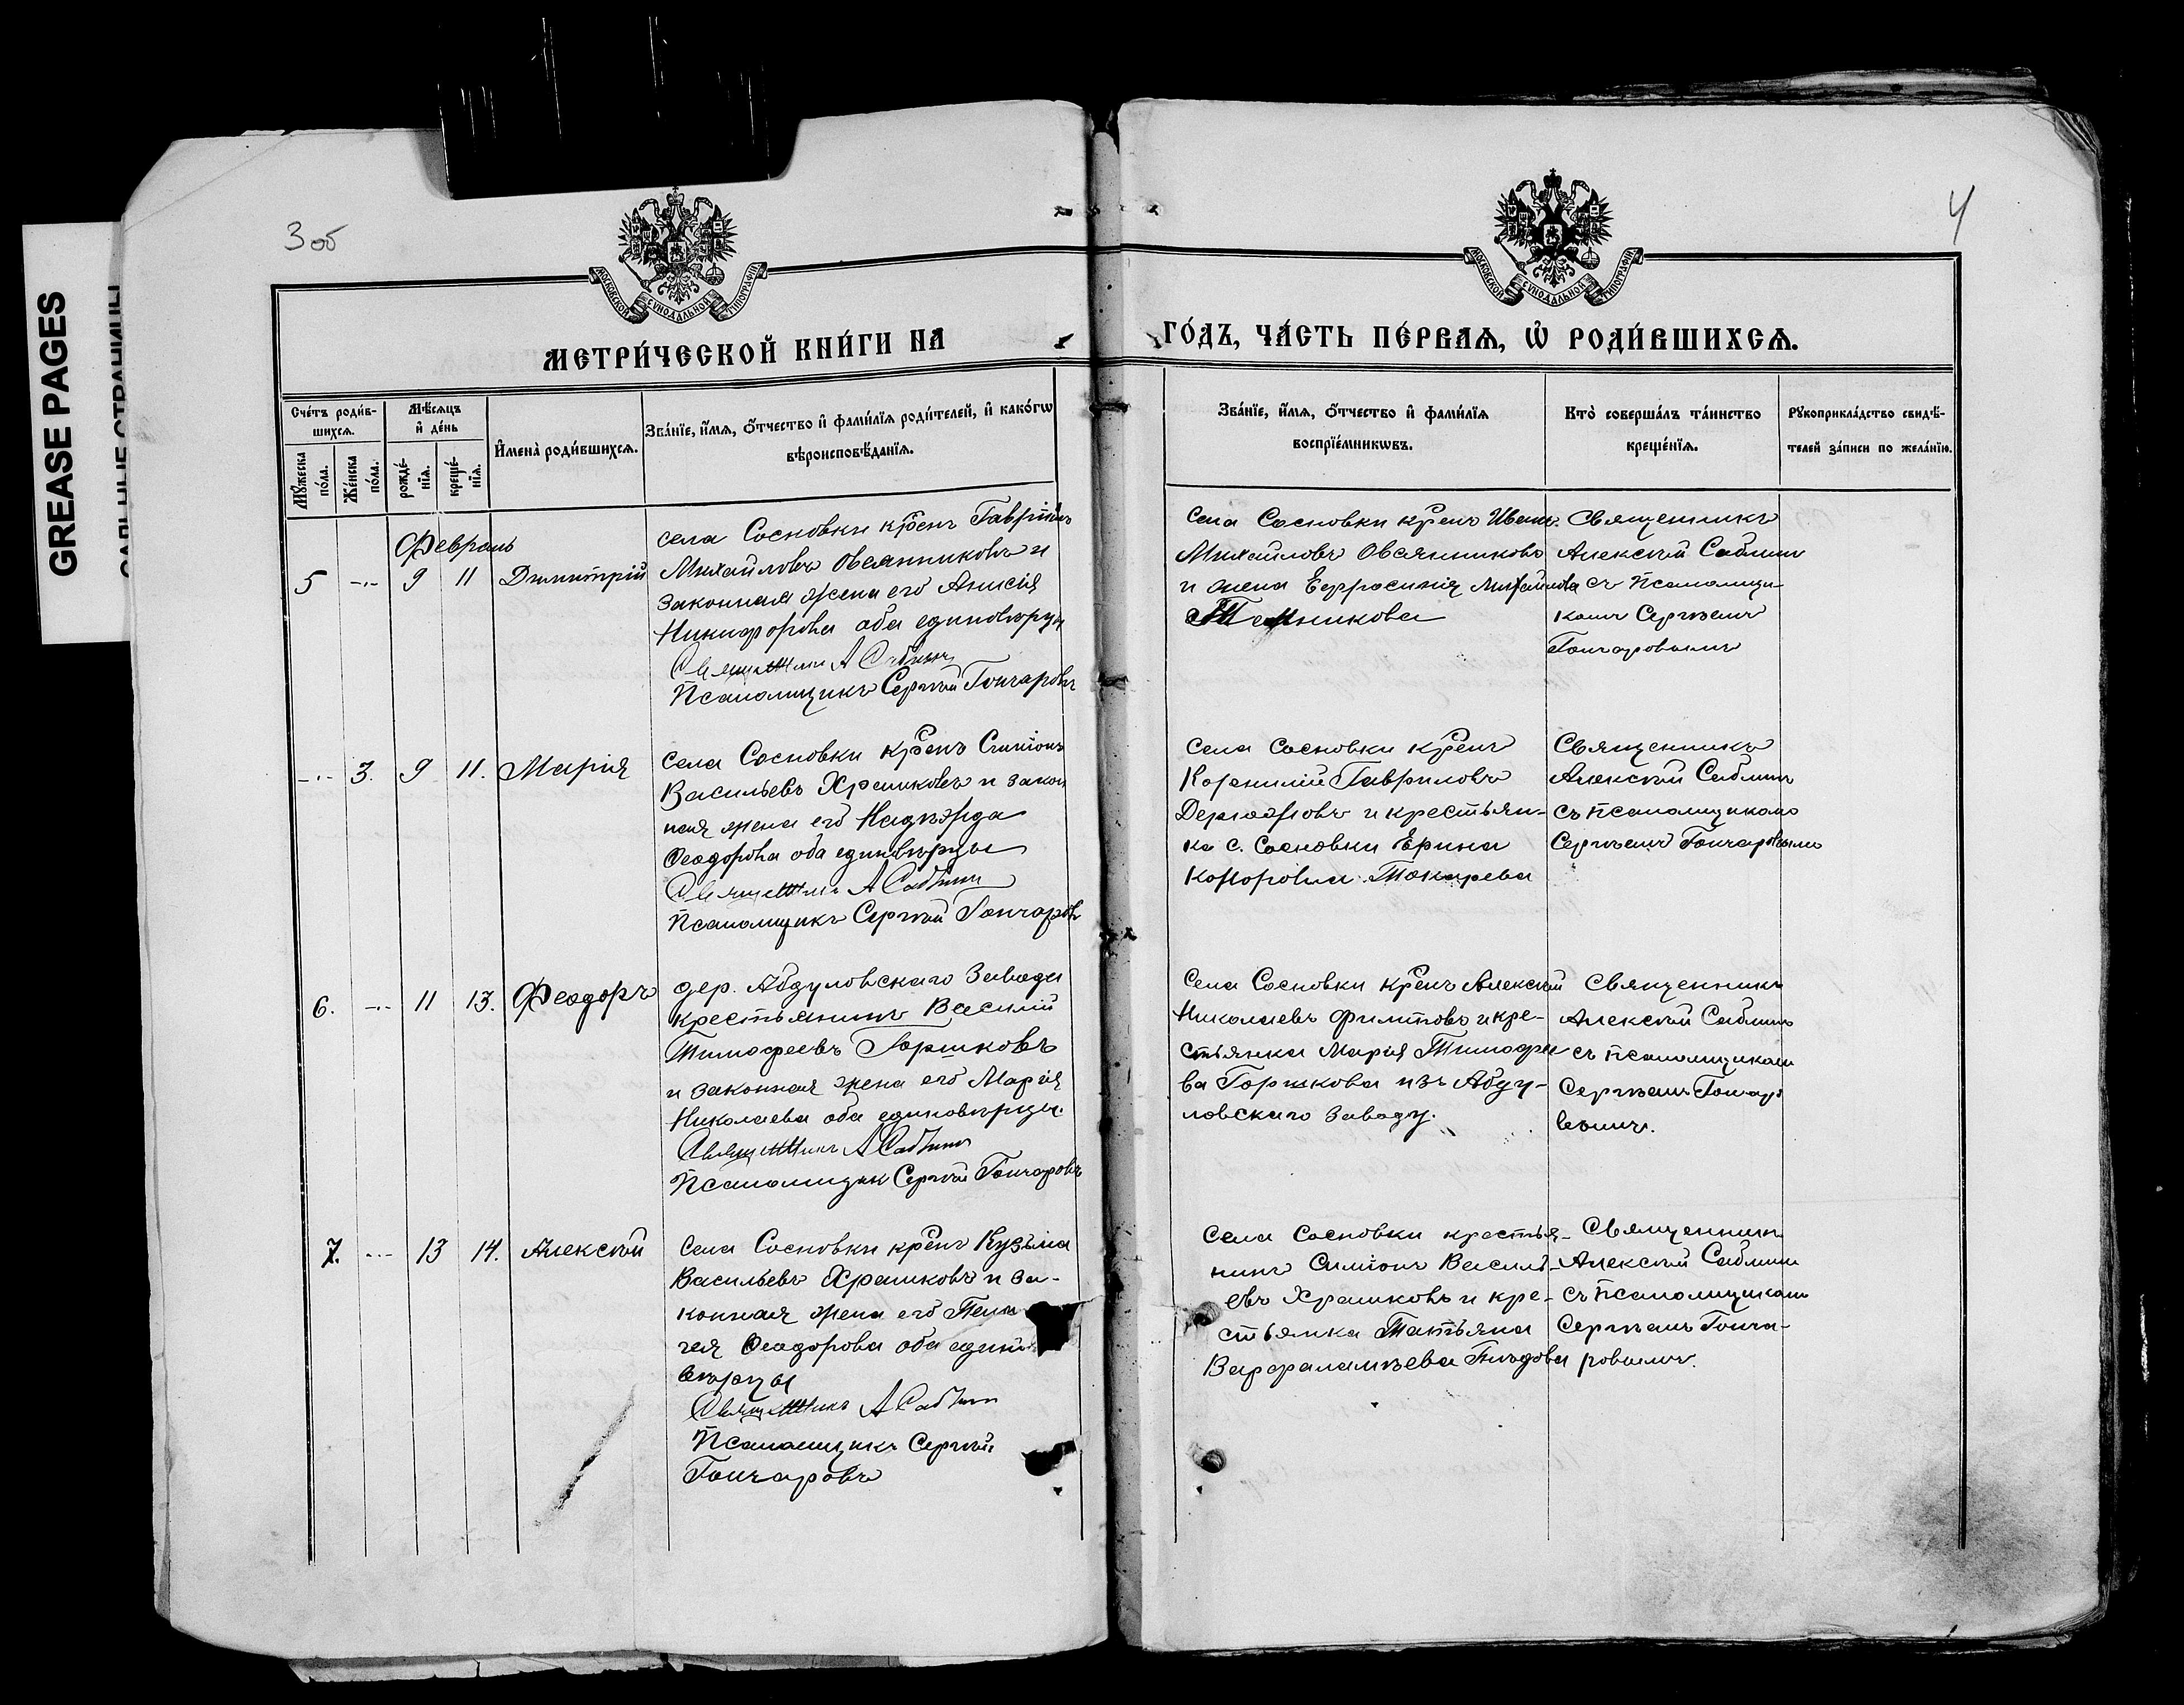 GREASE PAGES
САЛЬНЫЕ СТРАНИЦЫ
3 об
4
МОСКОВСКОЙ СУНОДАЛЬНОЙ ТИПОГРАФІИ
МОСКОВСКОЙ СУНОДАЛЬНОЙ ТИПОГРАФІИ
МЕТРИ́ЧЕСКОЙ КНИ́ГИ НА
ГО́ДЪ, ЧА́СТЬ ПЕ́РВАѦ, Ѡ҆ РОДИ́ВШИХСѦ.
Сче́тъ роди́в-
шихсѧ.
Мꙋ́жеска по́ла.
Же́нска по́ла.
Мѣ́сѧцъ
и҆ де́нь
рожде́-
нїѧ.
креще́-
нїѧ.
И҆мена̀ роди́вшихсѧ.
Зва́нїе, и҆́мѧ, ѻ҆́тчество и҆ фами́лїѧ роди́телей, и҆ како́гѡ
вѣроисповѣ́данїѧ.
Зва́нїе, и҆́мѧ, ѻ҆́тчество и҆ фами́лїѧ
воспрїе́мникѡвъ.
Кто̀ соверша́лъ та́инство
креще́нїѧ.
Рꙋкоприкла́дство свидѣ́-
телей за́писи по жела́нїю.
Февраль
5 -.- 9 11 Димитрій
села Сосновки крѣнъ Гавріилъ
Михайловъ Овсянниковъ и
законная жена его Анисія
Никифорова оба единовѣрцы
Священникъ А Саблинъ
Псаломщикъ Сергѣй Гончаровъ
Села Сосновки крѣнъ Иванъ
Михайловъ Овсянниковъ
и жена Евфросинія Михайлова
Священникъ
Алексѣй Саблинъ
съ Псаломщи-
комъ Сергѣемъ
Гончаровымъ
-.- 3. 9 11. Марія
Села Сосновки крѣнъ Симіонъ
Васильевъ Храмковъ и закон
ная жена его Надѣжда
Феодорова оба единовѣрцы
Священникъ А Саблинъ
Псаломщикъ Сергѣй Гончаровъ
Села Сосновки крѣнъ
Корнилій Гавриловъ
и крестьян-
ка с. Сосновки Ерина
Токарева
Священникъ
Алексѣй Саблинъ
съ псаломщикомъ
Сергѣемъ Гончаровымъ
6. -.- 11 13. Феодоръ
дер. Абдуловскаго Завода
крестьянинъ Василій
Тимофеевъ Горшковъ
и законная жена его Марія
Николаева оба единовѣрцы.
Священникъ А Саблинъ
Псаломщик Сергѣй Гончаровъ
Села Сосновки крѣнъ Алексѣй
Николаевъ Филиповъ и кре-
стьянка Марія Тимофее
ва Горшкова изъ Абду-
ловскаго Заводу.
Священникъ
Алексѣй Саблинъ
съ псаломщикомъ
Сергѣемъ Гончар
вымъ.
7. -.- 13 14. Алексѣй
Села Сосновки крѣнъ Кузьма
Васильевъ Храмковъ и за-
конная жена его Пела
гея Феодорова оба едино
вѣрцы
Священникъ А Саблинъ
Псаломщикъ Сергѣй
Гончаровъ
Села Сосновки крестья-
нинъ Симіонъ Василь-
евъ Храмковъ и кре-
стьянка Татьяна
Варфаламѣева
Священник
Алексѣй Саблинъ
съ Псаломщикомъ
Сергѣемъ Гонча-
ровымъ.